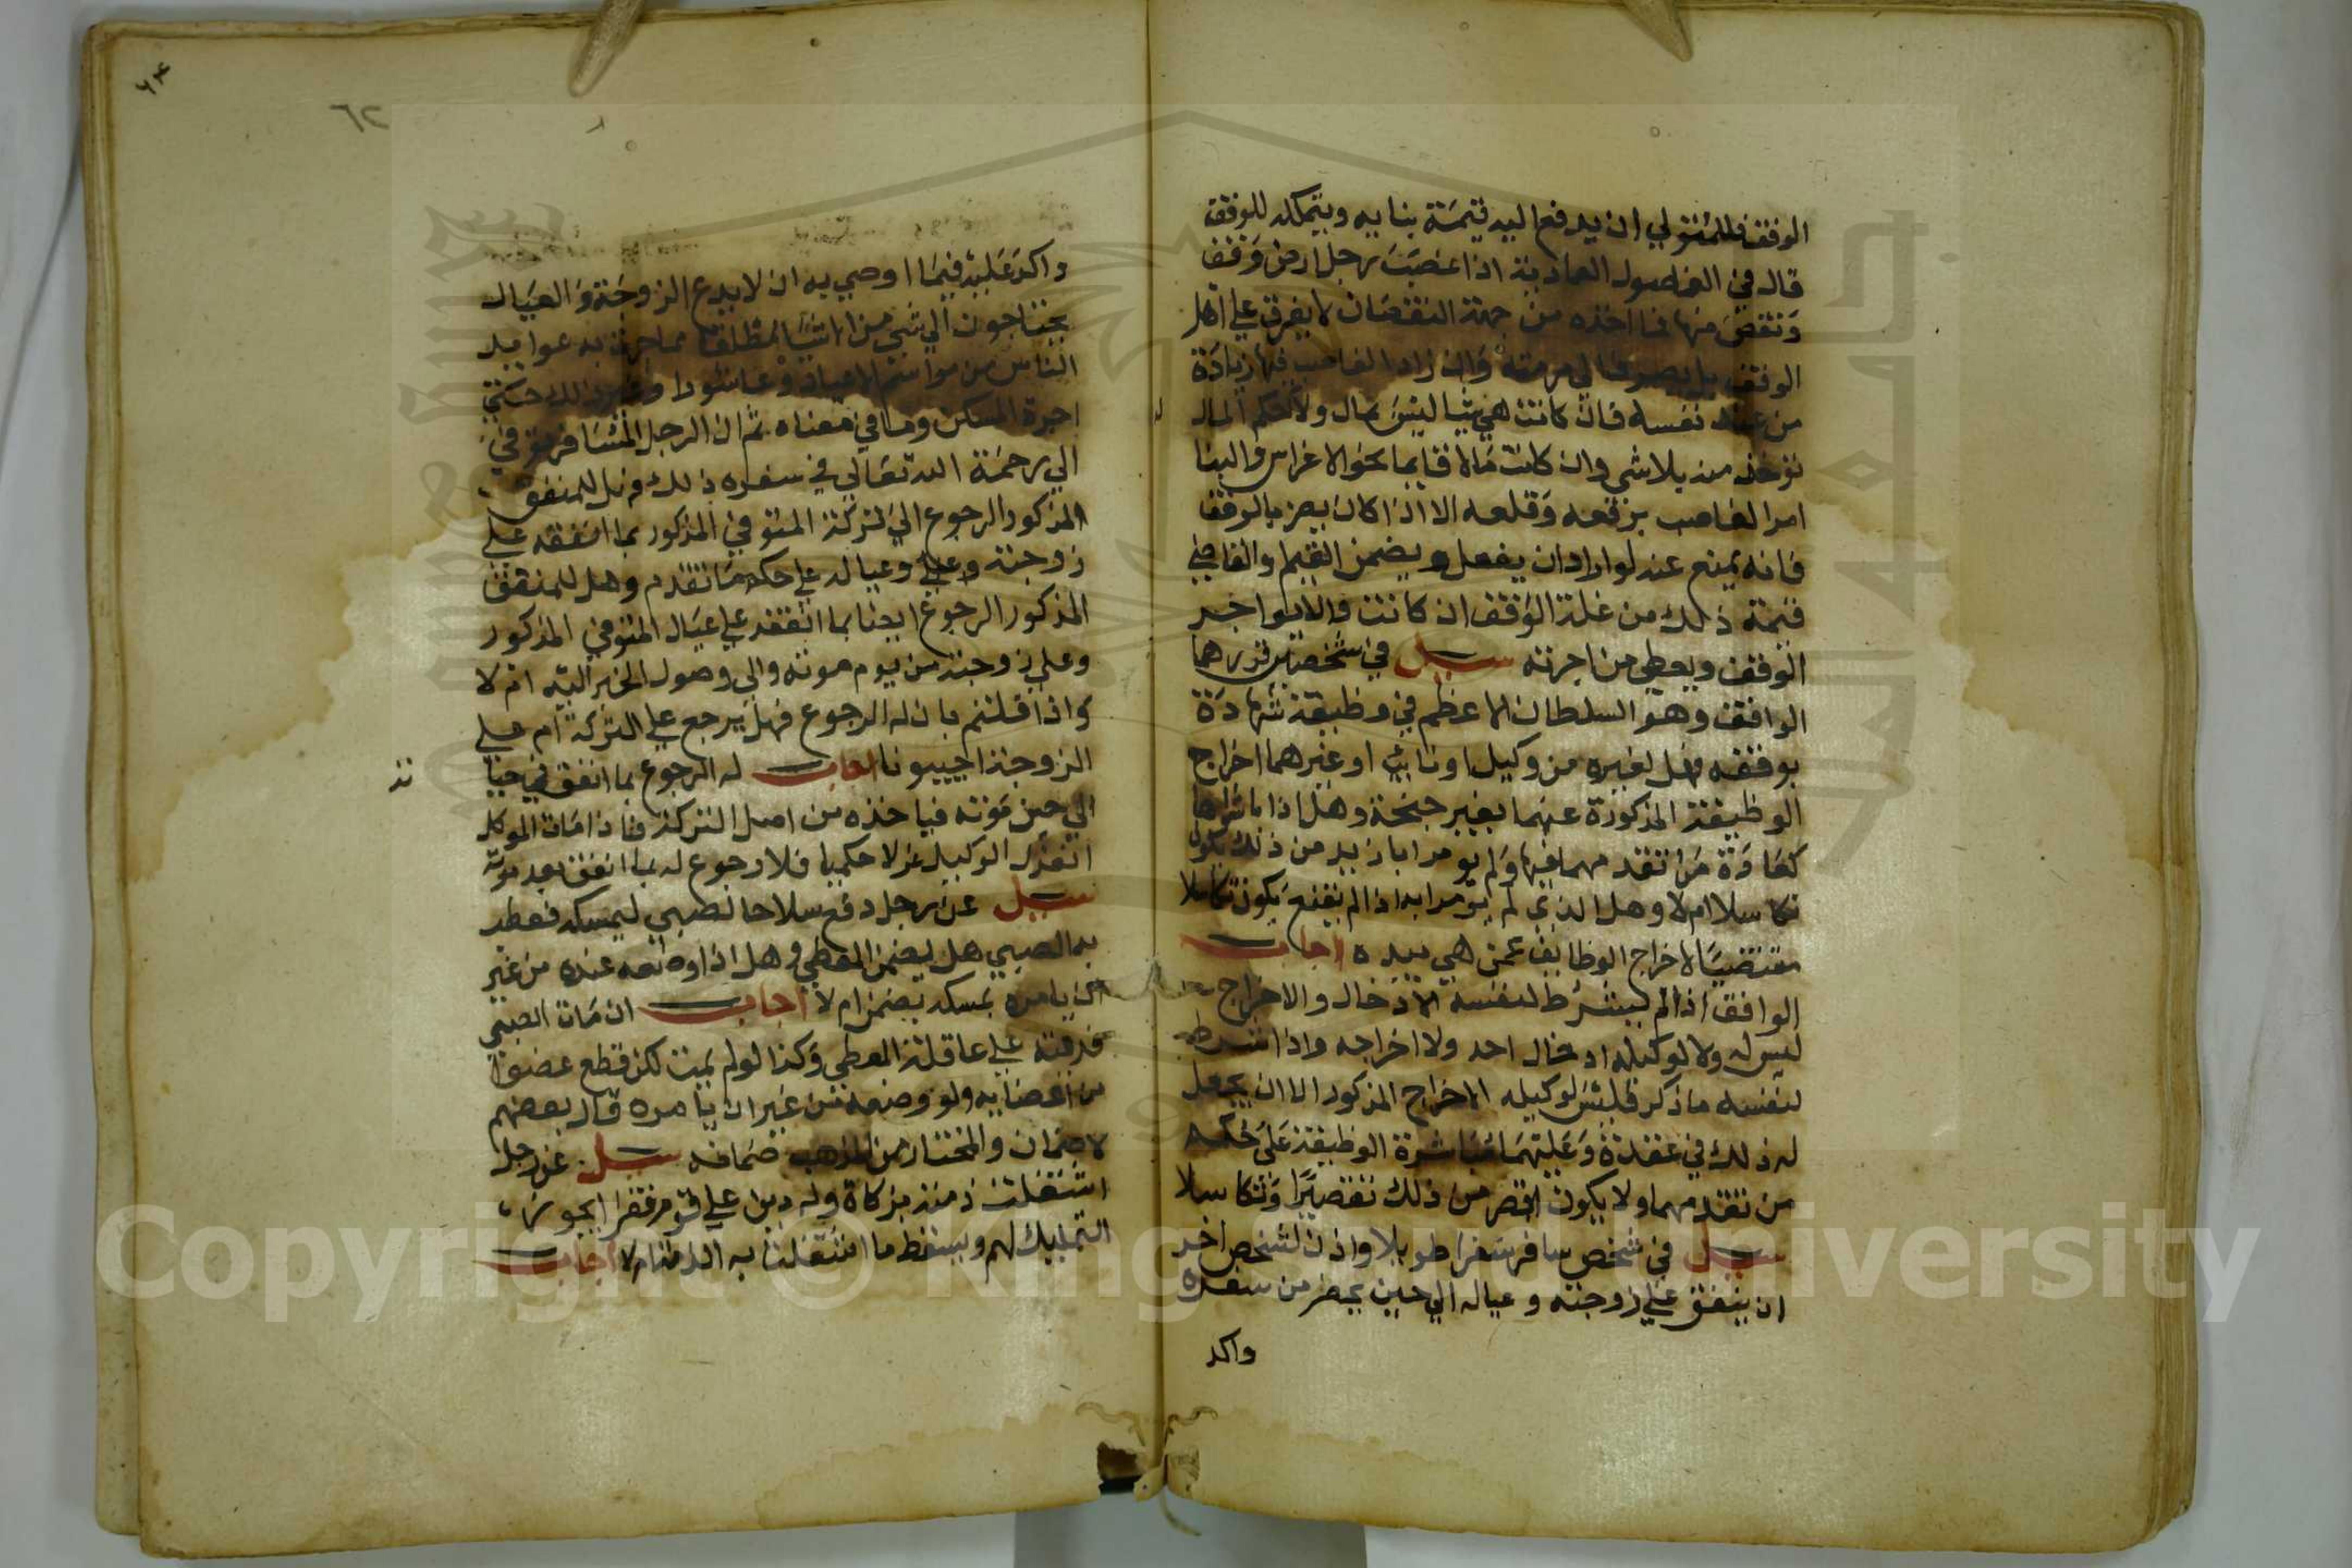 الوقف فللمتولي ان يدفع اليه قيمة بنايه ويتملكه للوقف
قال في الفصول العمادية اذا غصب رجل ارض وقف
ونقص منها فما اخذه من جهة النقصان لا يفرق علي اهل
الوقف بل يصرف الي مرمته وان زاد الغاصب فيها زيادة
من عند نفسه فان كانت شيا ليس بمال ولا حكم المال
توخذ منه بلا شي وان كانت مالا قايما نحو الاغراس والبنا
امر الغاصب برفعه وقلعه الا اذا كان يضر بالوقف
فانه يمنع عنه لو اراد ان يفعل ويضمن القيم والقاضي
قيمة ذلك من غلة الوقف ان كانت والا يواجر
الوقف ويعطي من اجرته سيل في شخصين قررهما
الواقف وهو السلطان الاعظم في وظيفة شهادة
بوقفه فهل لغيره من وكيل او نائب او غيرهما اخراج
الوظيفة المذكورة عنهما بغير جنحة وهل اذا باشراها
كعادة من تقدمهما فيها ولم يومرا بازيد من ذلك يكون
تكاسلا ام لا وهل الذي لم يومرا به اذا لم يقع يكون تكاسلا
مقتضيا لاخراج الوظايف عمن هي بيده اجاب
الواقف اذا لم يشترط لنفسه الادخال والاخراج
ليس له ولا لوكيله ادخال احد ولا اخراجه واذا شرط
لنفسه ما ذكر فليس لوكيله الاخراج المذكور الا ان يجعل
له ذلك في عقدة وعليهما مباشرة الوظيفة على حكم
من تقدمهما ولا يكون اقصر من ذلك تقصيرا وتكاسلا
سيل في شخص سافر سفرا طويلا واذن لشخص اخر
ان ينفق علي زوجته وعياله الي حين يحضر من سفره
واكد
٦٢
واكد عليه فيما اوصي به ان لا يدع الزوجة والعيال
يحتاجون الي شي من الاشيا مطلقا مما جرت به عوايد
الناس من مواسم الاعياد وعاشورا وغير ذلك حتي
اجرة المسكن وما في معناه ثم ان الرجل المسافر توفي
الي رحمة الله تعالي في سفره ذلك فهل للمنفق
المذكور الرجوع الي تركة المتوفي المذكور بما انفقه علي
زوجته وعياله علي حكم ما تقدم وهل للمنفق
المذكور الرجوع ايضا بما انفقه علي عيال المتوفي المذكور
وعلي زوجته من يوم موته والي وصول الخبر اليه ام لا
واذا قلتم بان له الرجوع فهل يرجع علي التركة ام علي
الزوجة اجيبونا اجاب له الرجوع بما انفق في حيا
الي حين موته فياخذه من اصل التركة فاذا مات الموكل
انعزل الوكيل عزلا حكميا فلا رجوع له بما انفق بعد موته
سيل عن رجل دفع سلاحا لصبي ليمسكه فعطب
به الصبي هل يضمن المعطي وهل اذا وضعه عنده من غير
ان يامره بمسكه يضمن ام لا اجاب ان مات الصبي
فديته علي عاقلة المعطي وكذا لو لم يمت لكن قطع عضوا
من اعضايه ولو وضعه من غير ان يامره قال بعضهم
لا ضمان والمختار من المذهب ضمانه سيل عن رجل
اشتغلت ذمته بزكاة وله دين علي قوم فقرا ايجوز
التمليك لهم ويسقط ما اشتغلت به الذمة ام لا اجاب